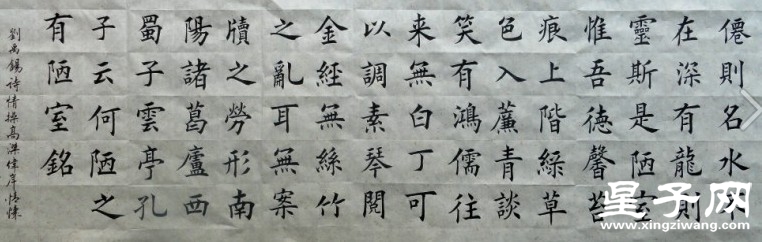 僊則名水不
在深有龍則
靈斯是陋室
惟吾德馨苔
痕上階綠草
色入簾青談
笑有鴻儒往
来無白丁可
以調素琴閱
金經無絲竹
之亂耳無案
牘之勞形南
陽諸葛廬西
蜀子雲亭孔
子云何陋之
有陋室銘
劉禹錫詩情操高偉岸
星子网
www.xingziwang.com